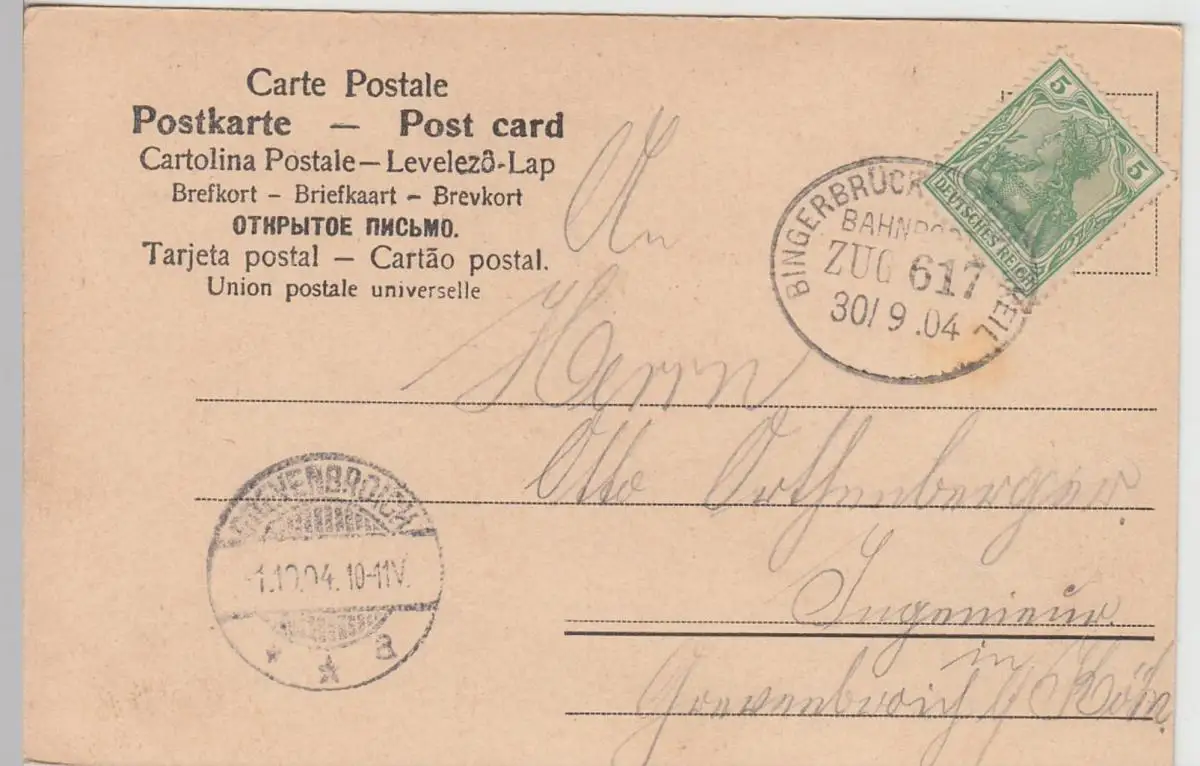 Carte Postale
Postkarte — Post card
Cartolina Postale — Levelező-Lap
Brefkort - Briefkaart - Brevkort
ОТКРЫТОЕ ПИСЬМО.
Tarjeta postal — Cartão postal.
Union postale universelle
5
5
DEUTSCHES REICH
BINGERBRÜCK
BAHNPOS
ZUG 617
30/9.04
An
Herrn
Otto Orthenberger
Ingenieur
in
Grevenbroich
Köln
GREVENBROICH
1.10.04. 10-11V.
* * a